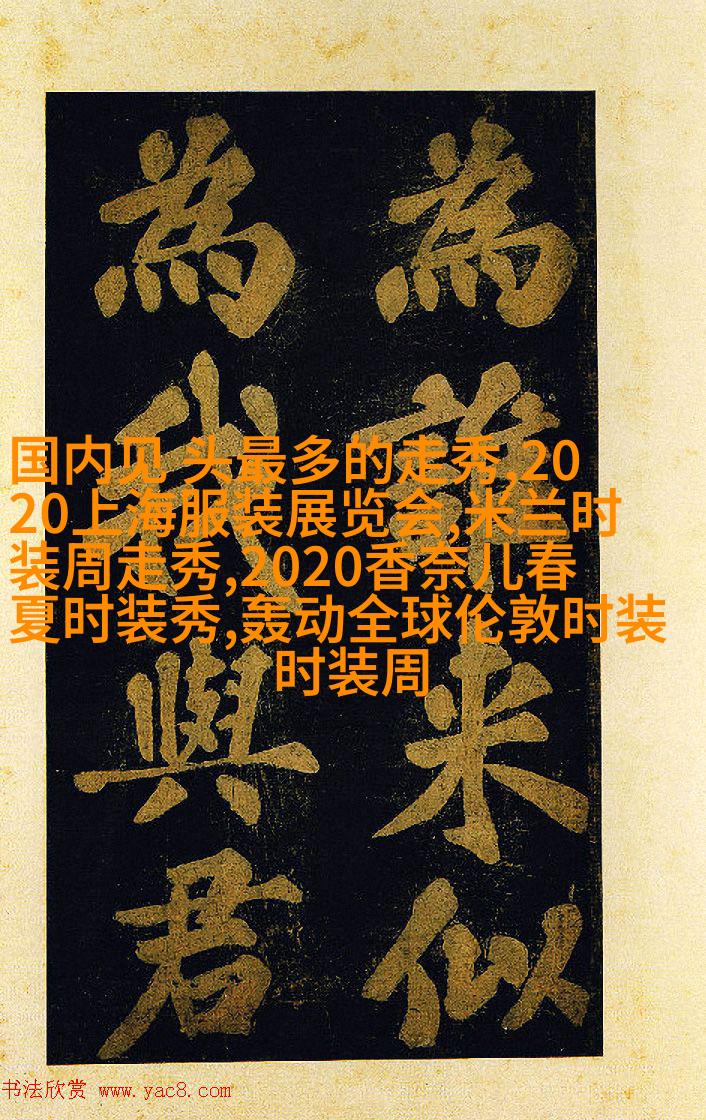 国内见 头最多的走秀,20
20上海服装展览会,米兰时
装周走秀,2020香奈儿春
夏时装秀,轰动全球伦敦时装
时装周
為誰来似
為我與君
书法欣赏 www.yac8.com